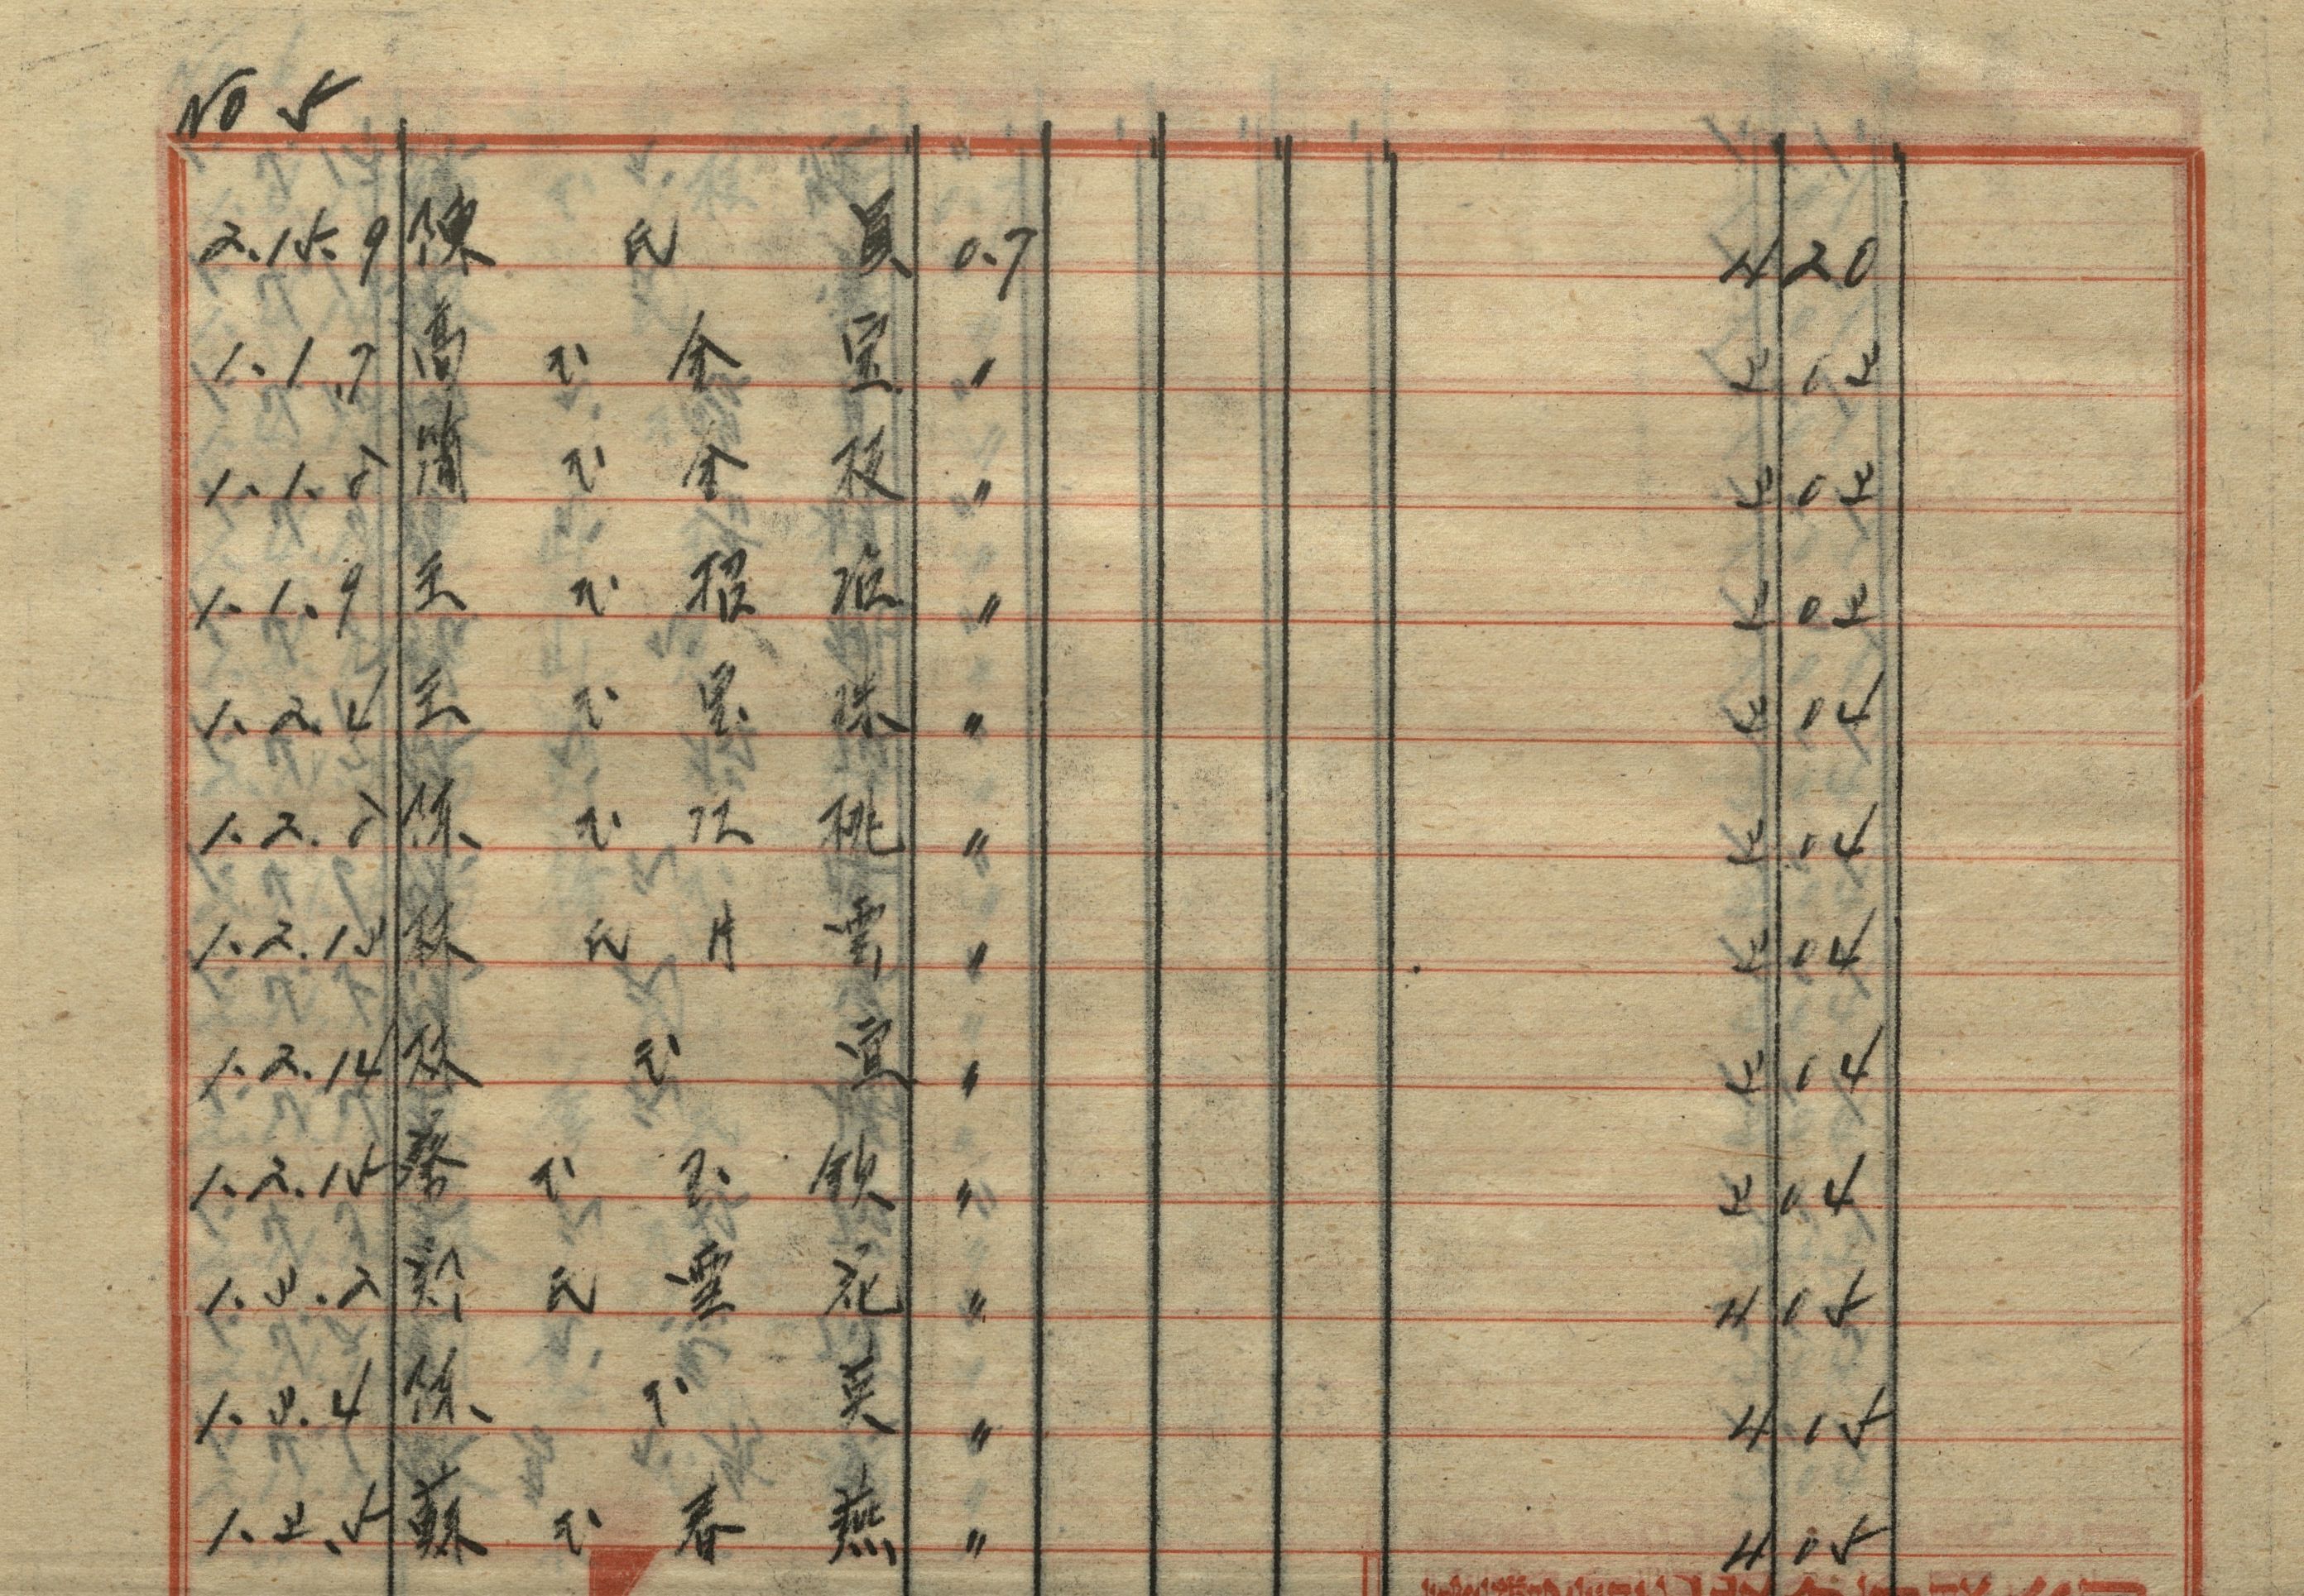 No 5
2.15.9 陳 氏 員 0.7 4 20
1.1.7 高 氏 金 宝 〃 3 03
1.1.8 簡 氏 金 枝 〃 3 03
1.1.9 王 氏 招 治 〃 3 03
1.2.4 王 氏 宝 珠 〃 3 04
1.2.8 陳 氏 江 桃 〃 3 04
1.2.13 林 氏 月 雲 〃 3 04
1.2.14 林 氏 宜 〃 3 04
1.2.15 蔡 氏 玉 釵 〃 3 04
1.3.2 鄭 氏 雲 花 〃 4 05
1.3.4 陳 氏 英 〃 4 05
1.3.5 蘇 氏 春 燕 〃 4 05